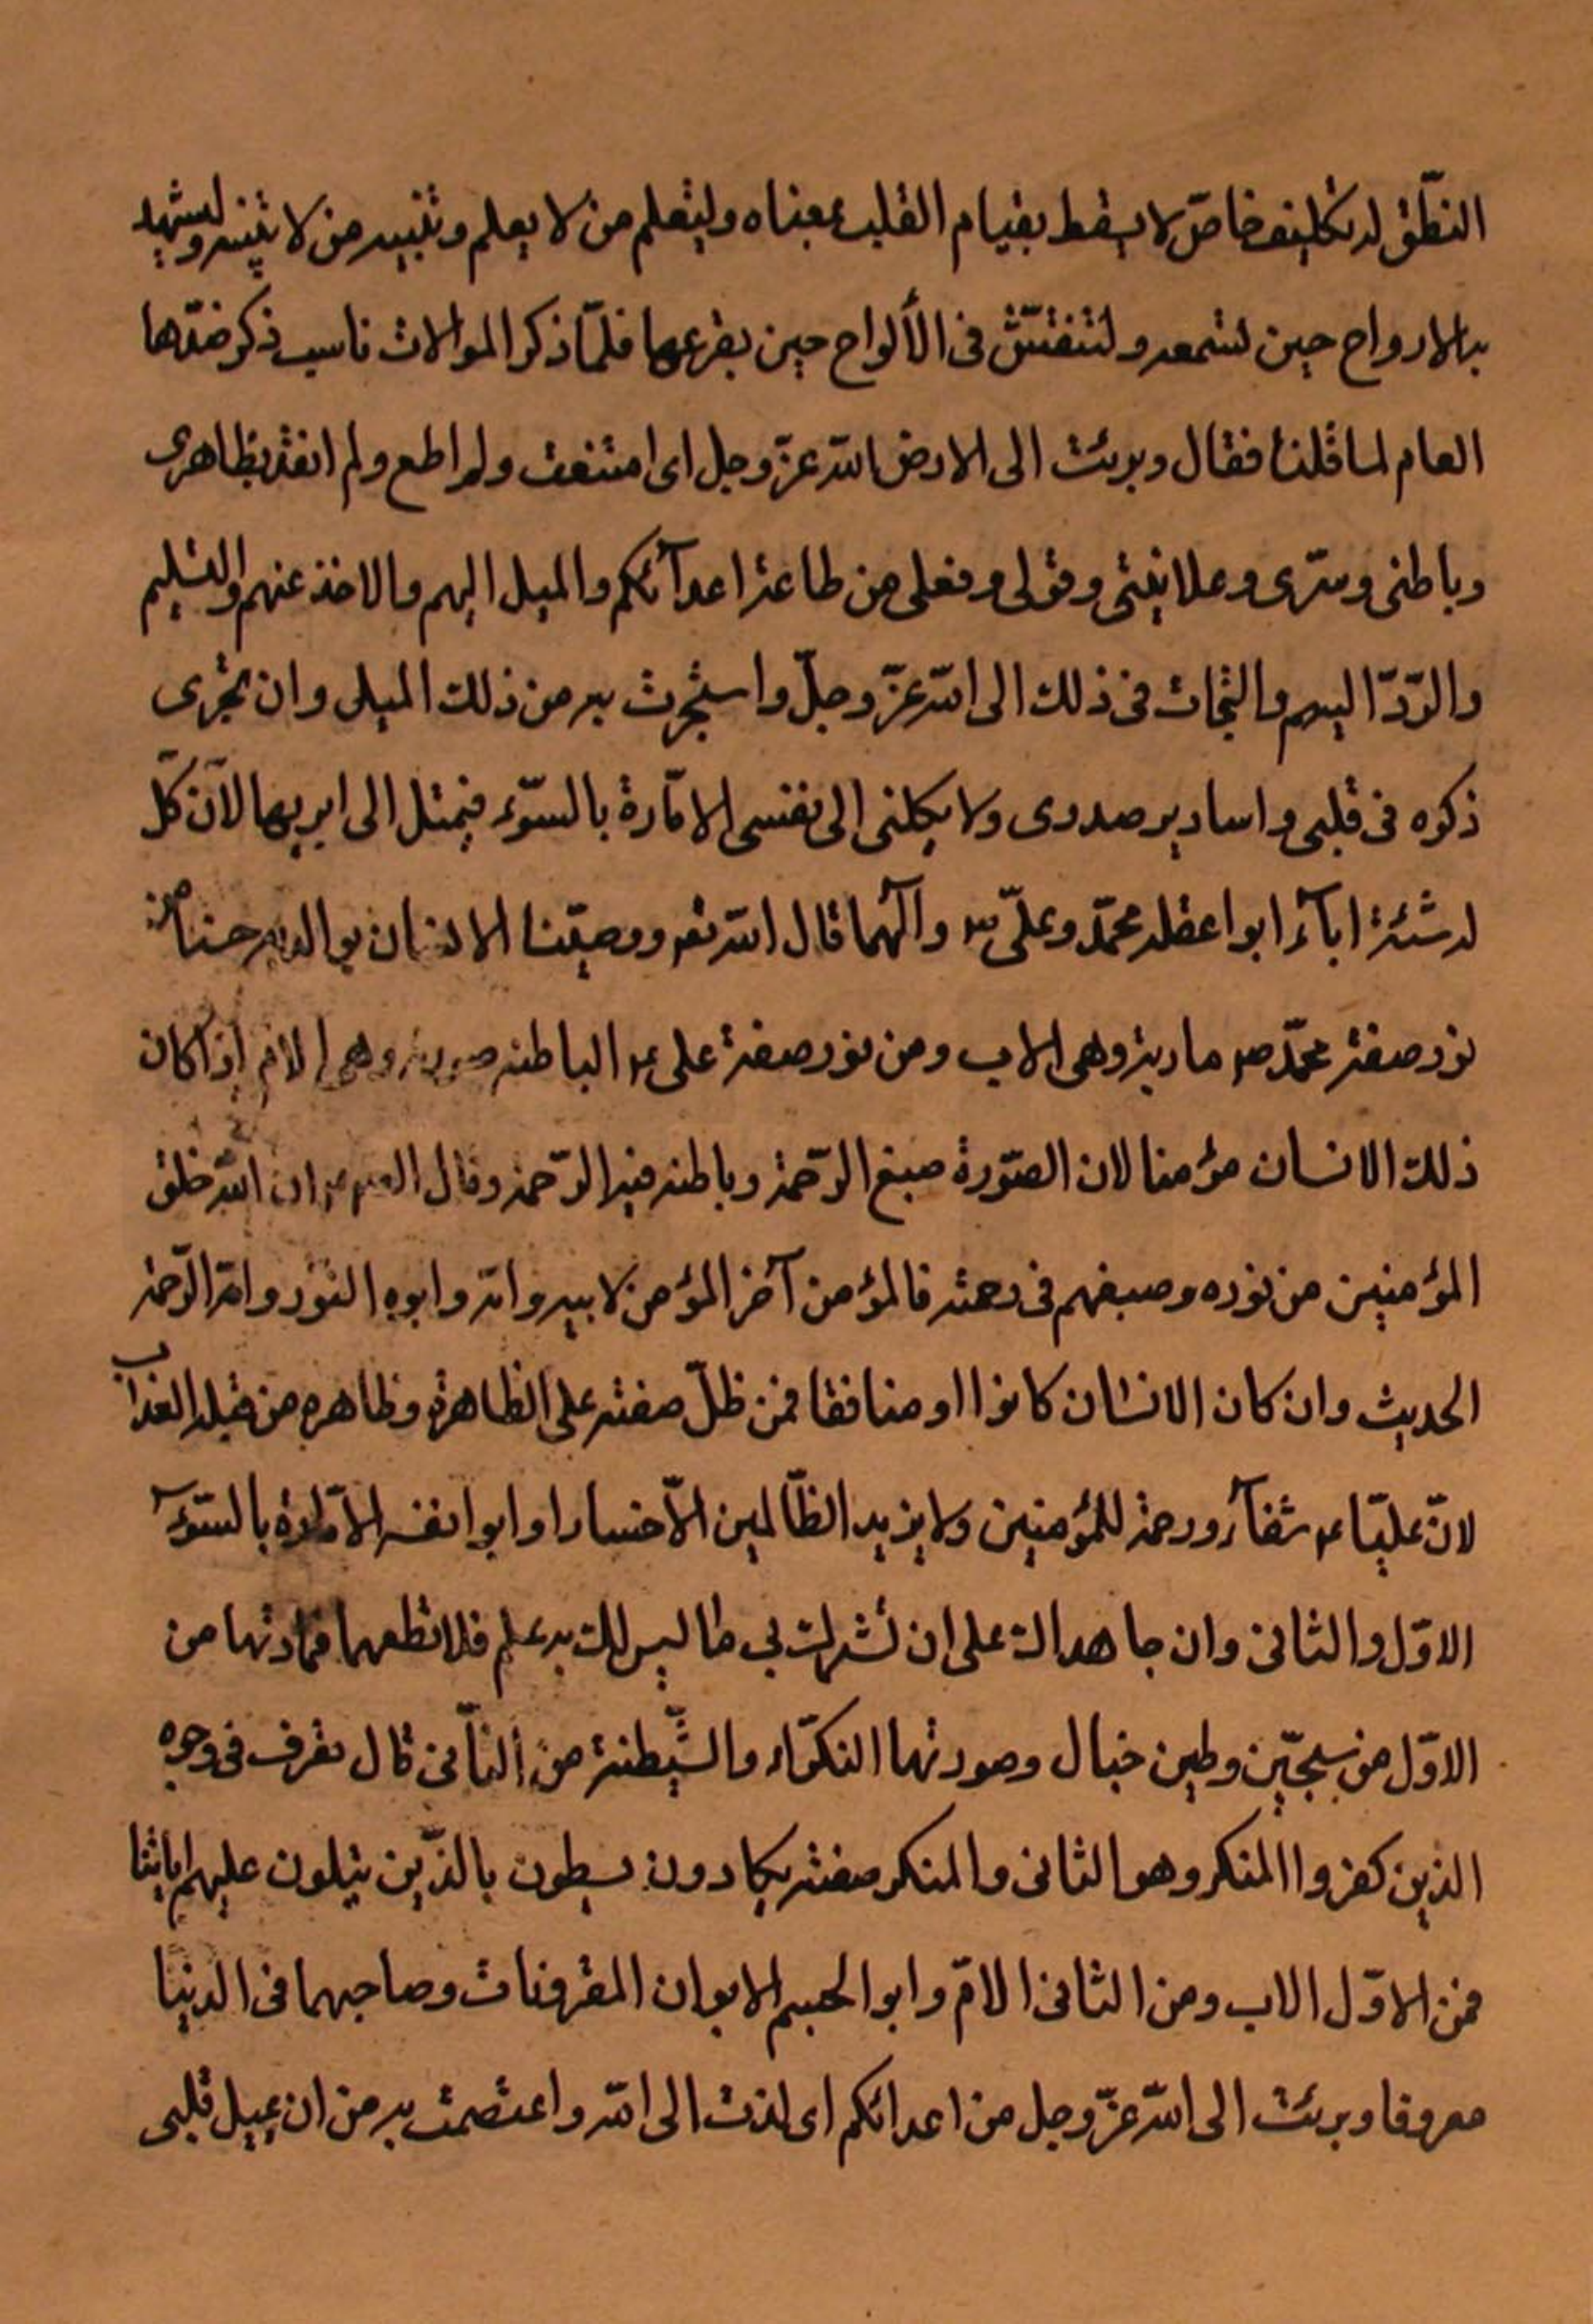 النطق له تكليف خاص لا يسقط بقيام القلب بمعناه وليتعلم من لا يعلم وتنبيه من لا يتنبه وليشهد
به الارواح حين تسمعه ولتنقش فى الألواح حين يقرعها فلمّا ذكر الموالات ناسب ذكر ضدّها
العام لما قلنا فقال وبرئت الى الله عزّ وجل اى امتنعت ولم اطع ولم انقد بظاهرى
وباطنى وسرّى وعلانيتى وقولى وفعلى من طاعة اعدآئكم والميل اليهم والاخذ عنهم والتسليم
والرّدّ اليهم والتجات فى ذلك الى الله عزّ وجلّ واستجرت به من ذلك الميل وان يجرى
ذكره فى قلبى واسارير صدرى ولا يكلنى الى نفسى الامّارة بالسّوء فتمثل الى ابويها لانّ كلّ
ابوا عقله محمّد وعلىّ ص وآلهما قال الله تعه ووصيّنا الانسان بوالديه حسنا من
نور صفة محمّد صه مادية وهى الاب ومن نور صفة على عه الباطنه صورته وهى الام اذا كان
ذلك الانسان مؤمنا لان الصّورة صبغ الرّحمة وباطنه فيه الرّحمة وقال ان الله خلق
المؤمنين من نوره وصبغهم فى رحمته فالمؤمن آخر المؤمن لابيه وامّه وابوه النّور وامّه الرّحمة
الحديث وان كان الانسان كافرا او منافقا فمن ظلّ صفة على الظاهرة وظاهره من قبله العذاب
لانّ عليّا عه شفآء ورحمة للمؤمنين ولا يزيد الظّالمين الاّ خسارا وابوا نفسه الامّارة بالسّوء
الاوّل والثانى وان جاهداك على ان تشرك بى ما ليس لك به علم فلا تطعهما فمادتها من
الاوّل من سجّين وطين خبال وصورتها النكرآء والشّيطنة من الثّانى قال تعرف فى وجوه
الذين كفروا المنكر وهو الثانى والمنكر صفته يكادون يسطون بالذّين يتلون عليهم اياتنا
فمن الاوّل الاب ومن الثانى الامّ وابوا الجسم الابوان المعروفات وصاحبهما فى الدنيا
معروفا وبرئت الى الله عزّ وجل من اعدائكم اى لذت الى الله واعتصمت به من ان يميل قلبى